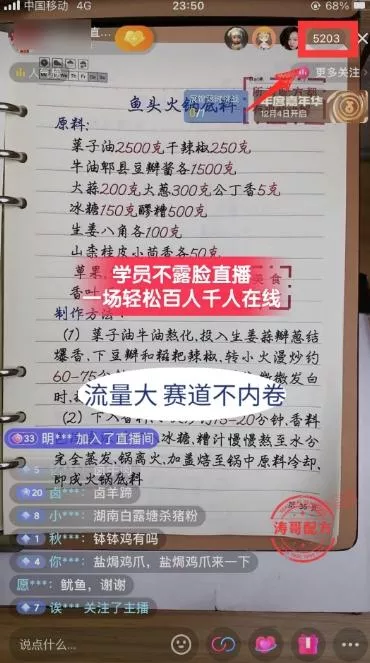 中国移动 4G
23:50
68%
直…
5203
人气榜
更多关注
年度嘉年华
12月4日开启
鱼头火锅底料
原料:
菜子油2500克干辣椒250克
牛油郫县豆瓣酱各1500克
大蒜200克大葱300克公丁香5克
冰糖150克醪糟500克
生姜八角各100克
山柰桂皮小茴香各50克
草果
香叶
美食
学员不露脸直播
一场轻松百人千人在线
制作方法:
(1) 菜子油牛油熬化,投入生姜蒜瓣葱结
爆香,下豆瓣和糍粑辣椒,转小火漫炒约
60-75分
微微发白
时,
流量大 赛道不内卷
(2) 下入香料
15-20分钟,香料
33 明*** 加入了直播间
冰糖,糟汁慢慢熬至水分
完全蒸发,锅离火,加盖焐至锅中原料冷却,
即成火锅底料
20 卤***: 卤羊蹄
8 小***: 湖南白露塘杀猪粉
1 秋***: 钵钵鸡有吗
4 你***: 盐焗鸡爪,盐焗鸡爪来一下
愿***: 鱿鱼,谢谢
7 诶*** 关注了主播
第 35 页
涛哥配方
说点什么...